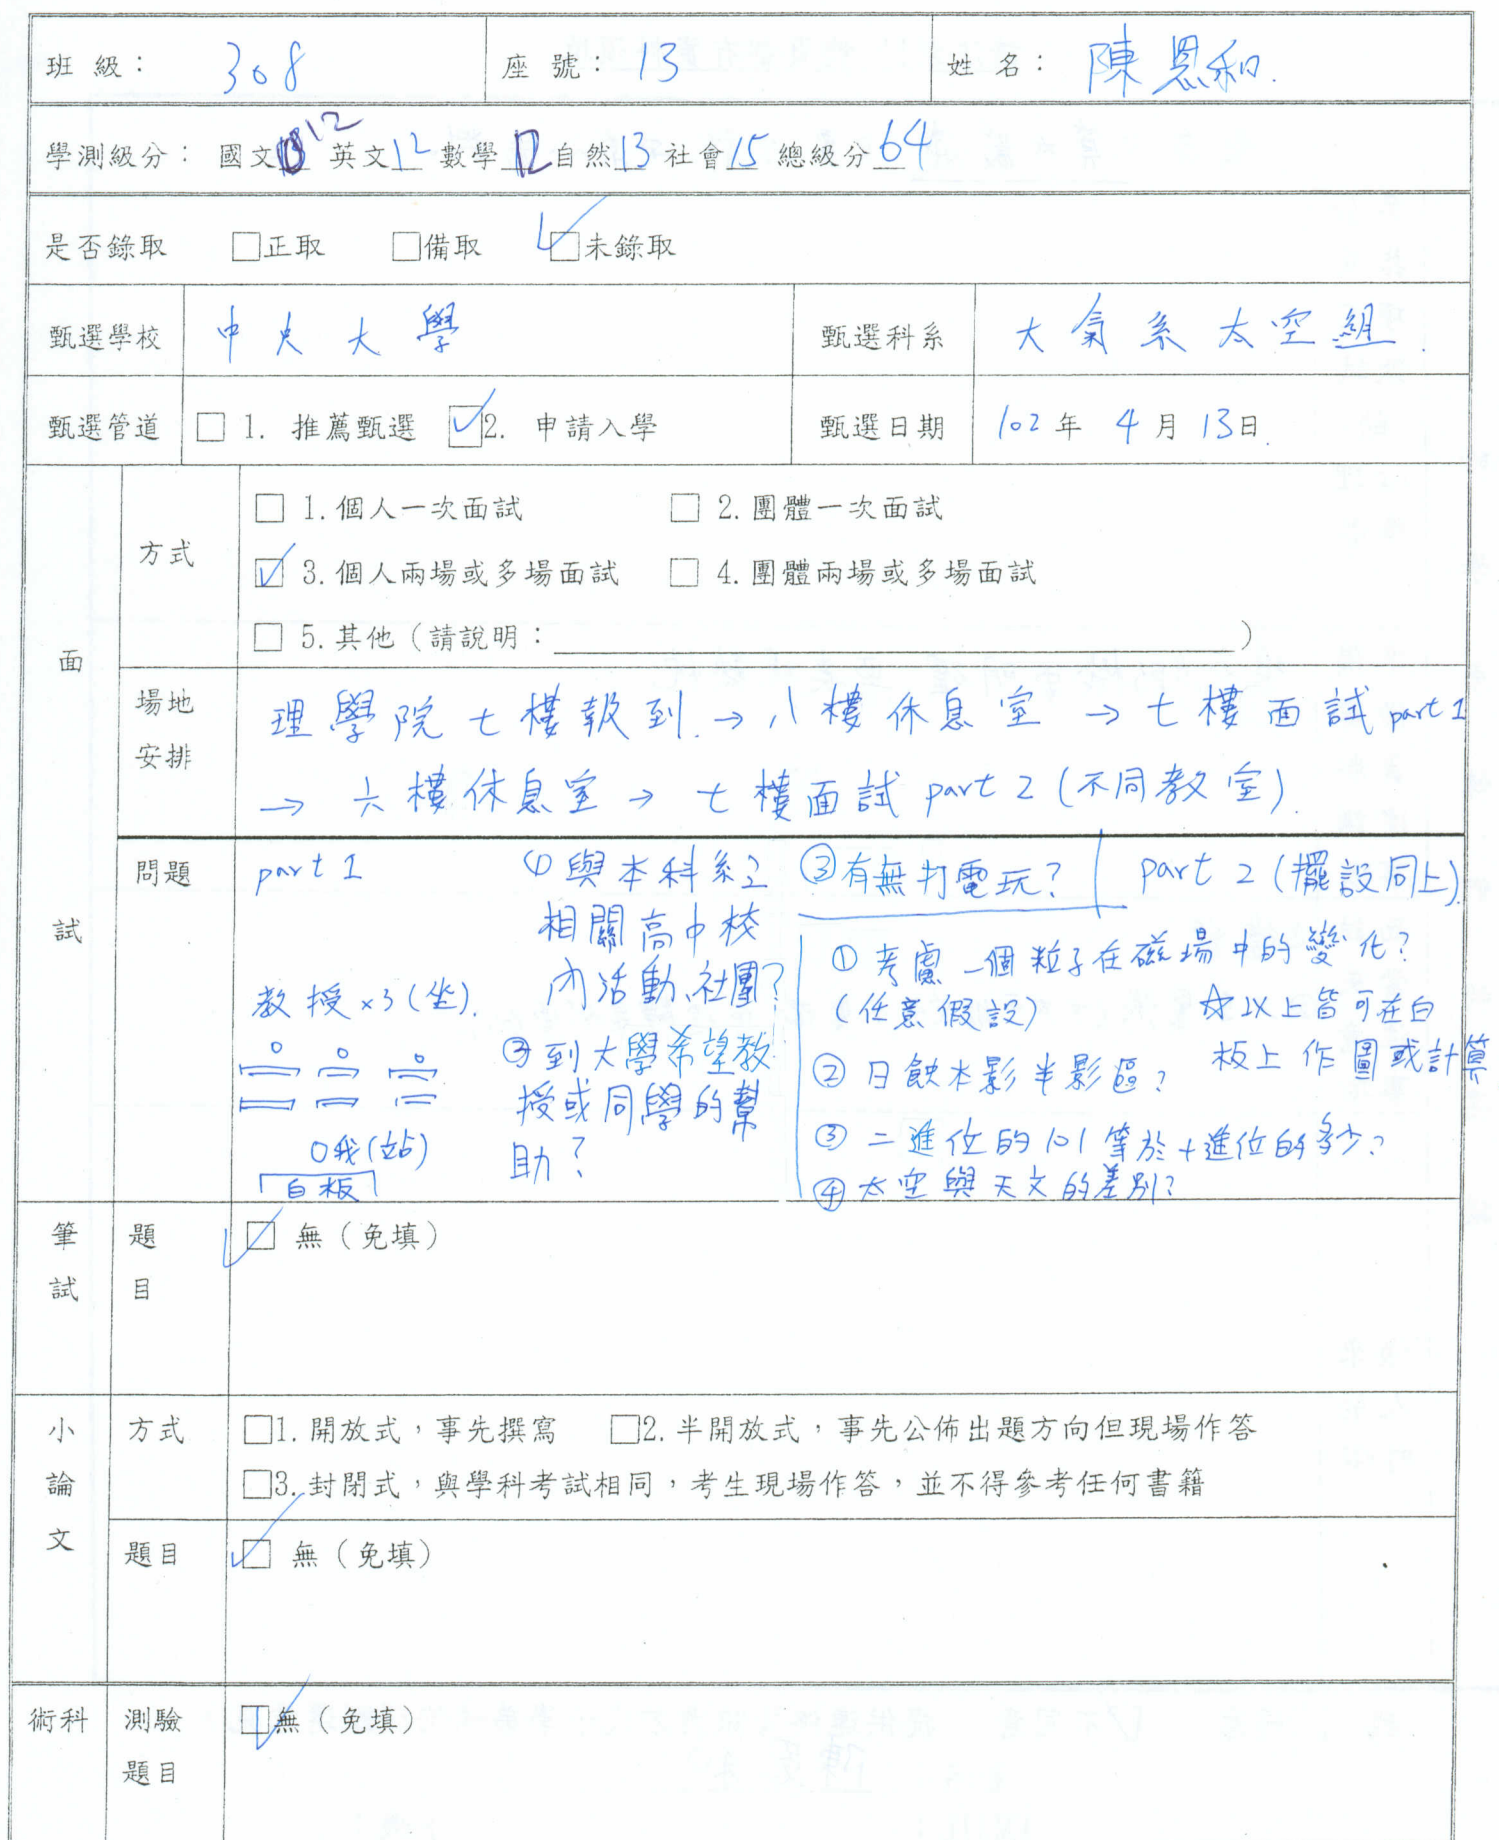 班級： 308 座號： 13 姓名： 陳恩和.
學測級分： 國文12 英文12 數學12 自然13 社會15 總級分64
是否錄取 □正取 □備取 ☑未錄取
甄選學校 中央大學 甄選科系 大氣系太空組.
甄選管道 □ 1. 推薦甄選 ☑2. 申請入學 甄選日期 102年 4月 13日.
面試
方式
□ 1.個人一次面試 □ 2.團體一次面試
☑ 3.個人兩場或多場面試 □ 4.團體兩場或多場面試
□ 5.其他（請說明：）
場地安排
理學院七樓報到.→八樓休息室→七樓面試part1
→六樓休息室→七樓面試part 2(不同教室).
問題
part 1
教授×3(坐).
我(站)
白板
①與本科系之
相關高中校
內活動、社團?
②到大學希望教
授或同學的幫
助?
③有無打電玩?
part 2(擺設同上).
①考慮一個粒子在磁場中的變化?
(任意假設)
☆以上皆可在白
板上作圖或計算
②日蝕本影半影區?
③二進位的101等於十進位的多少?
④太空與天文的差別?
筆試
題目
☑ 無（免填）
小論文
方式
□1.開放式，事先撰寫 □2.半開放式，事先公佈出題方向但現場作答
□3.封閉式，與學科考試相同，考生現場作答，並不得參考任何書籍
題目
☑ 無（免填）
術科
測驗題目
☑無（免填）